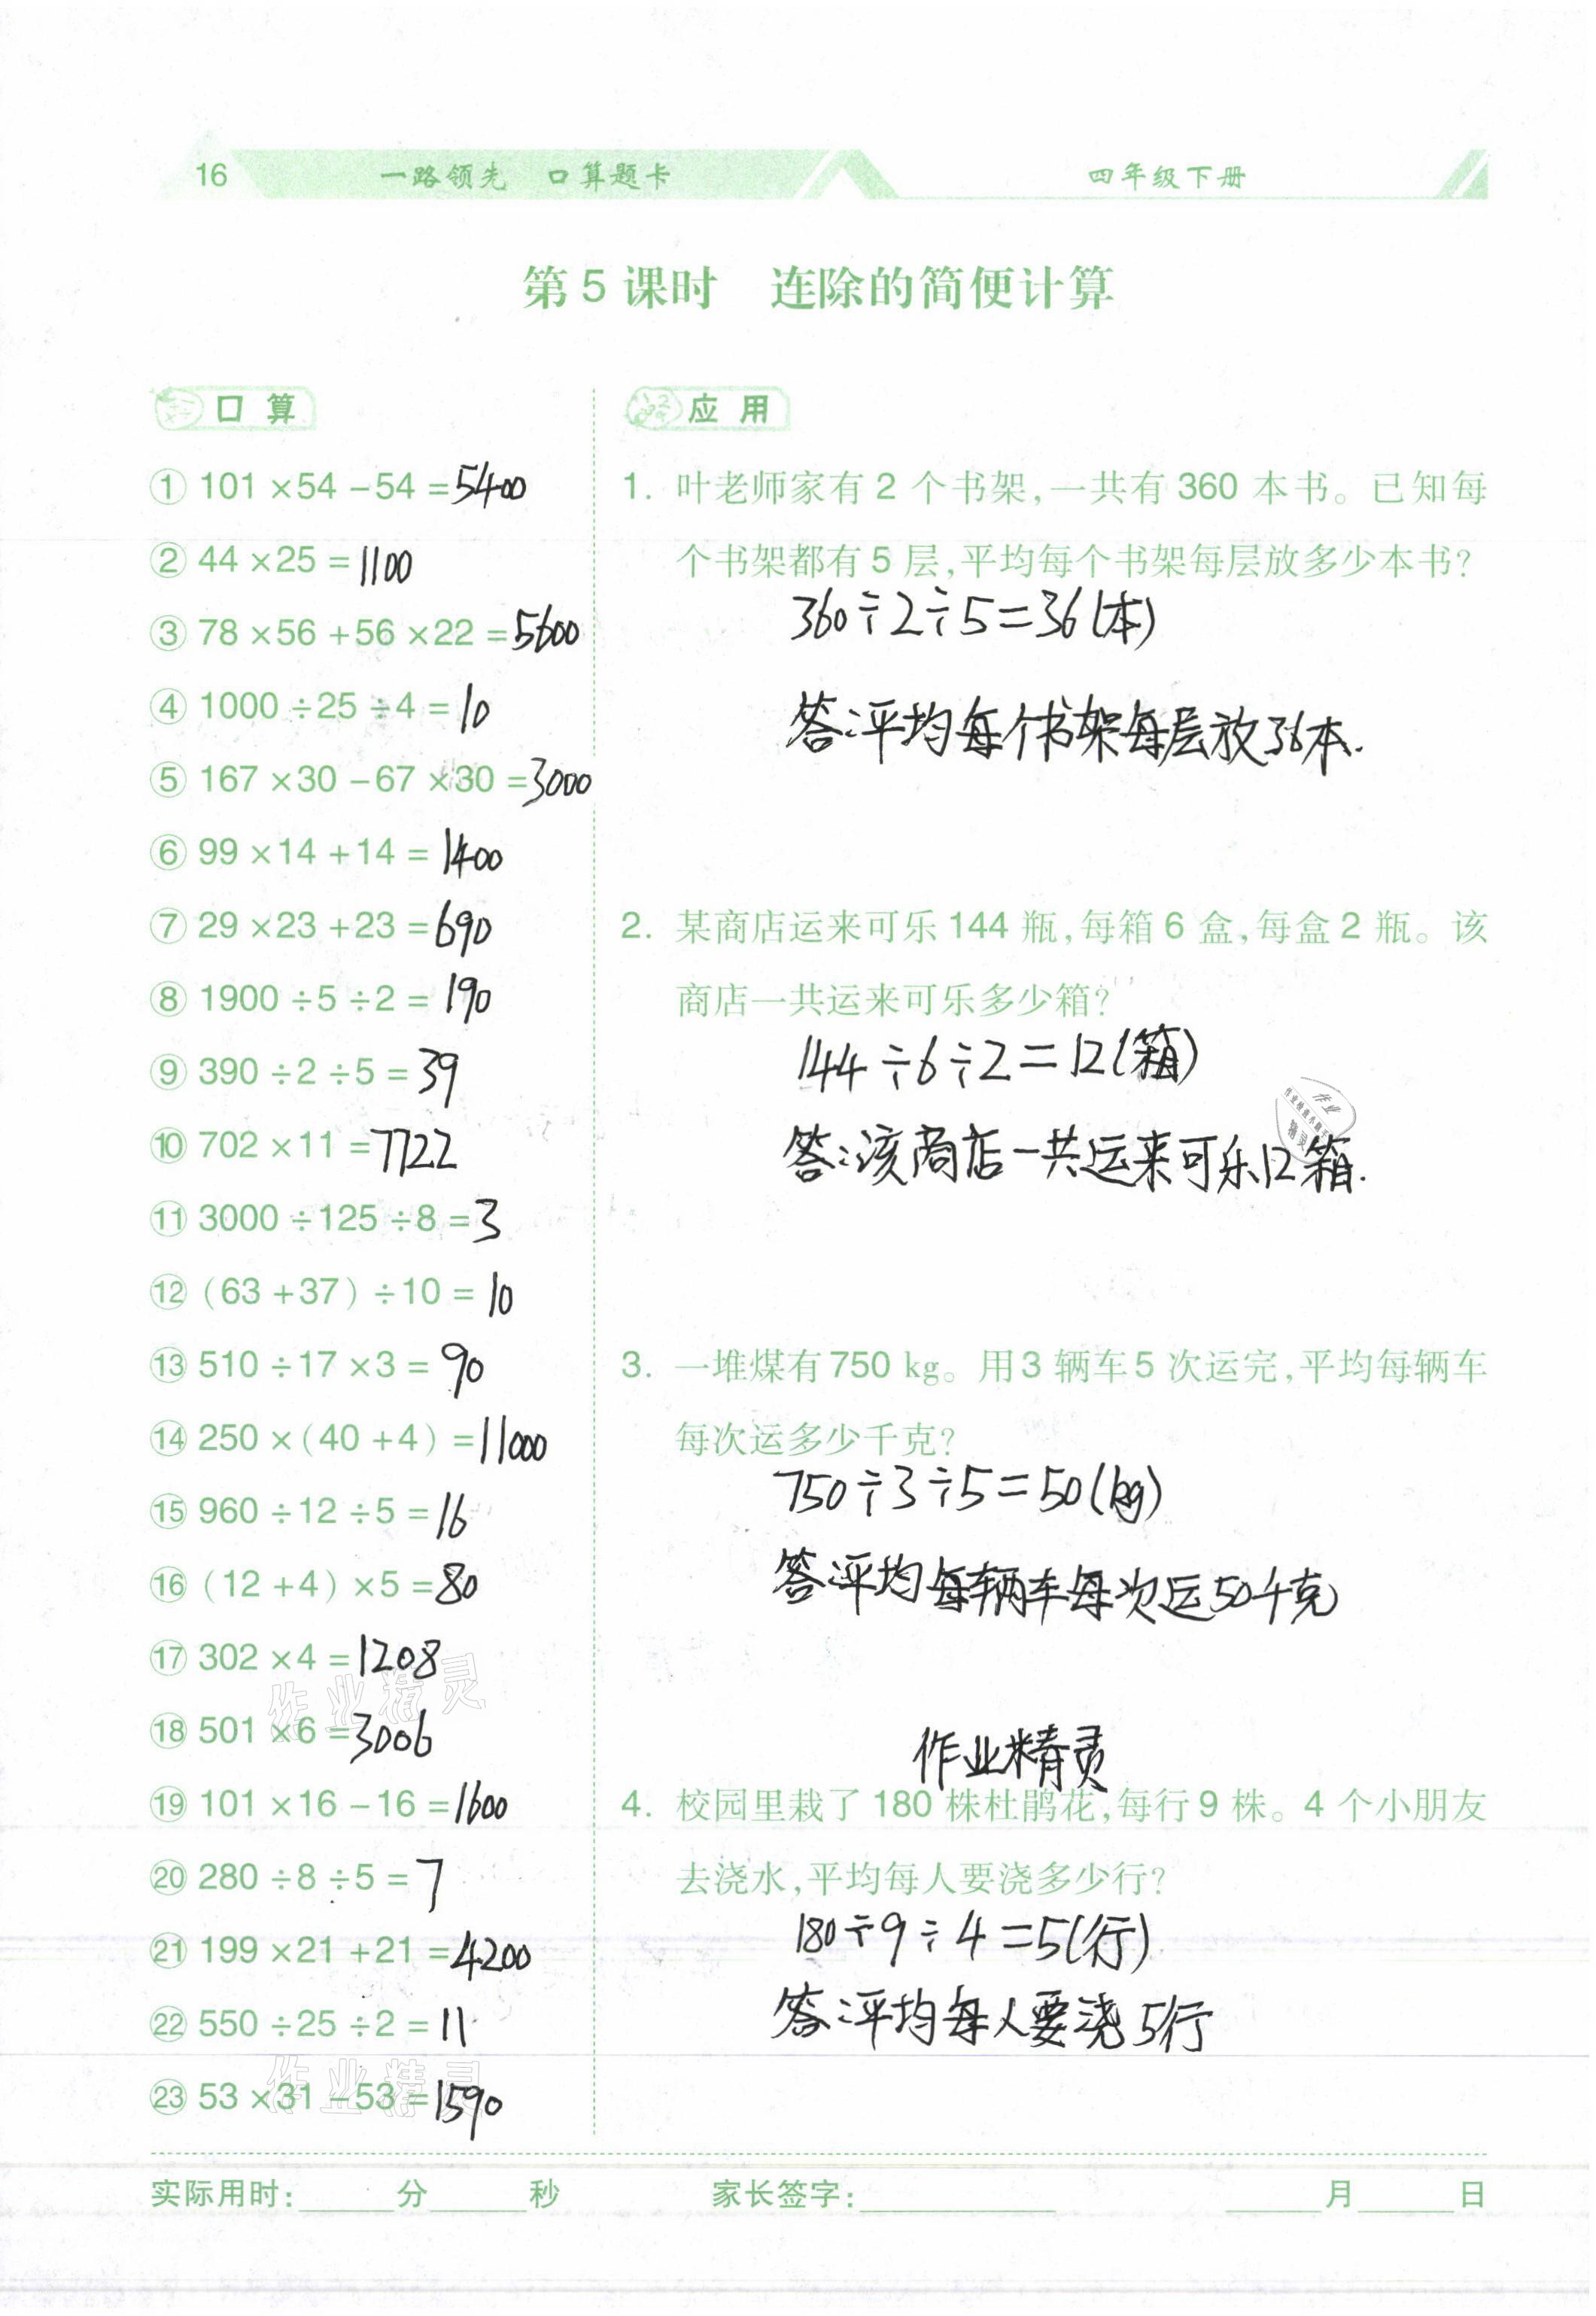 16 一路领先 口算题卡 四年级下册
第 5 课时 连除的简便计算
口 算
① 101 ×54 -54 =5400
② 44 ×25 =1100
③ 78 ×56 +56 ×22 =5600
④ 1000 ÷25 ÷4 =10
⑤ 167 ×30 -67 ×30 =3000
⑥ 99 ×14 +14 =1400
⑦ 29 ×23 +23 =690
⑧ 1900 ÷5 ÷2 =190
⑨ 390 ÷2 ÷5 =39
⑩ 702 ×11 =7722
⑪ 3000 ÷125 ÷8 =3
⑫ (63 +37) ÷10 =10
⑬ 510 ÷17 ×3 =90
⑭ 250 ×(40 +4) =11000
⑮ 960 ÷12 ÷5 =16
⑯ (12 +4) ×5 =80
⑰ 302 ×4 =1208
作业精灵
⑱ 501 ×6 =3006
⑲ 101 ×16 -16 =1600
⑳ 280 ÷8 ÷5 =7
㉑ 199 ×21 +21 =4200
㉒ 550 ÷25 ÷2 =11
作业精灵
㉓ 53 ×31 -53 =1590
应 用
1. 叶老师家有 2 个书架,一共有 360 本书。已知每
个书架都有 5 层,平均每个书架每层放多少本书?
360÷2÷5=36(本)
答:平均每个书架每层放36本.
2. 某商店运来可乐 144 瓶,每箱 6 盒,每盒 2 瓶。该
商店一共运来可乐多少箱?
144÷6÷2=12(箱)
作业
精灵
答:该商店一共运来可乐12箱.
3. 一堆煤有 750 kg。用 3 辆车 5 次运完,平均每辆车
每次运多少千克?
750÷3÷5=50(kg)
答:平均每辆车每次运50千克
作业精灵
4. 校园里栽了 180 株杜鹃花,每行 9 株。4 个小朋友
去浇水,平均每人要浇多少行?
180÷9÷4=5(行)
答:平均每人要浇5行
实际用时:______分______秒 家长签字:____________ ______月______日